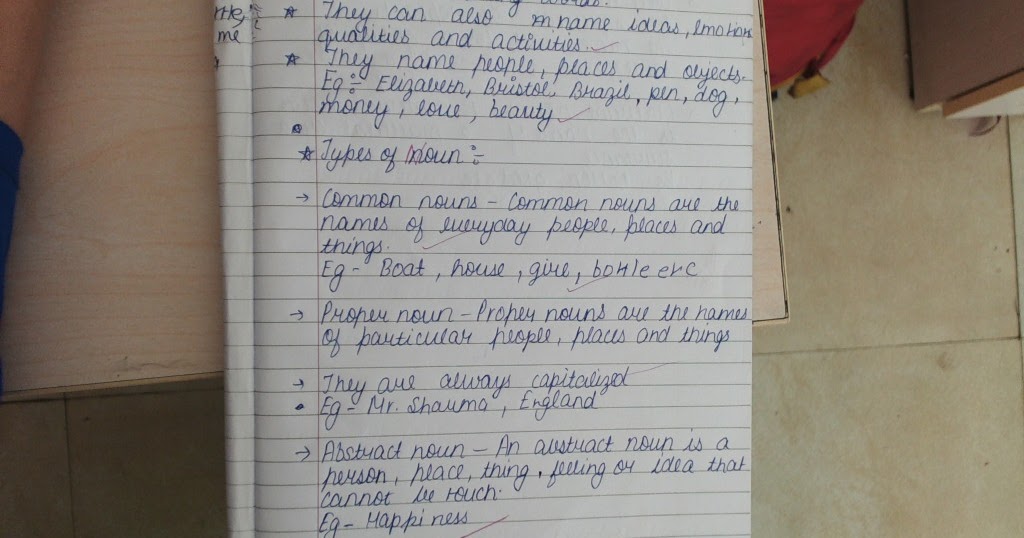 me
★ They can also name ideas, emotion
qualities and activities.
★ They name people, places and objects.
Eg :- Elizabeth, Bristol, Brazil, pen, dog,
money, love, beauty
★ Types of Noun :-
→ Common nouns - Common nouns are the
names of everyday people, places and
things.
Eg - Boat, house, give, bottle etc
→ Proper noun - Proper nouns are the names
of particular people, places and things
→ They are always capitalized
• Eg - Mr. Sharma, England
→ Abstract noun - An abstract noun is a
person, place, thing, feeling or idea that
cannot be touch.
Eg - Happiness